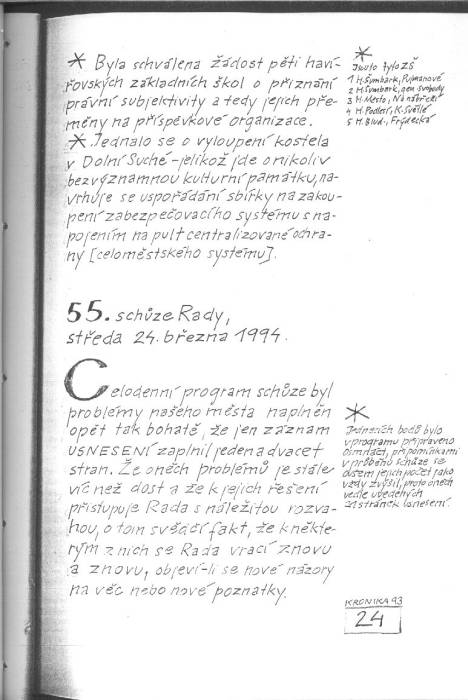 * Byla schválena žádost pěti haví-
řovských základních škol o přiznání
právní subjektivity a tedy jejich pře-
měny na příspěvkové organizace.
* Jednalo se o vyloupení kostela
v Dolní Suché - jelikož jde o nikoliv
bezvýznamnou kulturní památku, na-
vrhuje se uspořádání sbírky na zakou-
pení zabezpečovacího systému s na-
pojením na pult centralizované ochra-
ny [celoměstského systému].
*
Jsou to tyto ZŠ
1 H. Šumbark, Pujmanové
2 H. Šumbark, gen. Svobody
3 H. Město, Na nábřeží
4 H. Podlesí, K. Světlé
5 H. Blud., Frýdecká
55. schůze Rady,
středa 24. března 1994.
Celodenní program schůze byl
problémy našeho města naplněn
opět tak bohatě, že jen záznam
USNESENÍ zaplnil jedenadvacet
stran. Že oněch problémů je stále
víc než dost a že k jejich řešení
přistupuje Rada s náležitou rozva-
hou, o tom svědčí fakt, že k někte-
rým z nich se Rada vrací znovu
a znovu, objeví-li se nové názory
na věc nebo nové poznatky.
*
Jednacích bodů bylo
v programu připraveno
osmnáct, připomínkami
v průběhu schůze se
ovšem jejich počet jako
vždy zvýšil, proto oněch
vedle uvedených
21 stránek usnesení.
KRONIKA 93
24